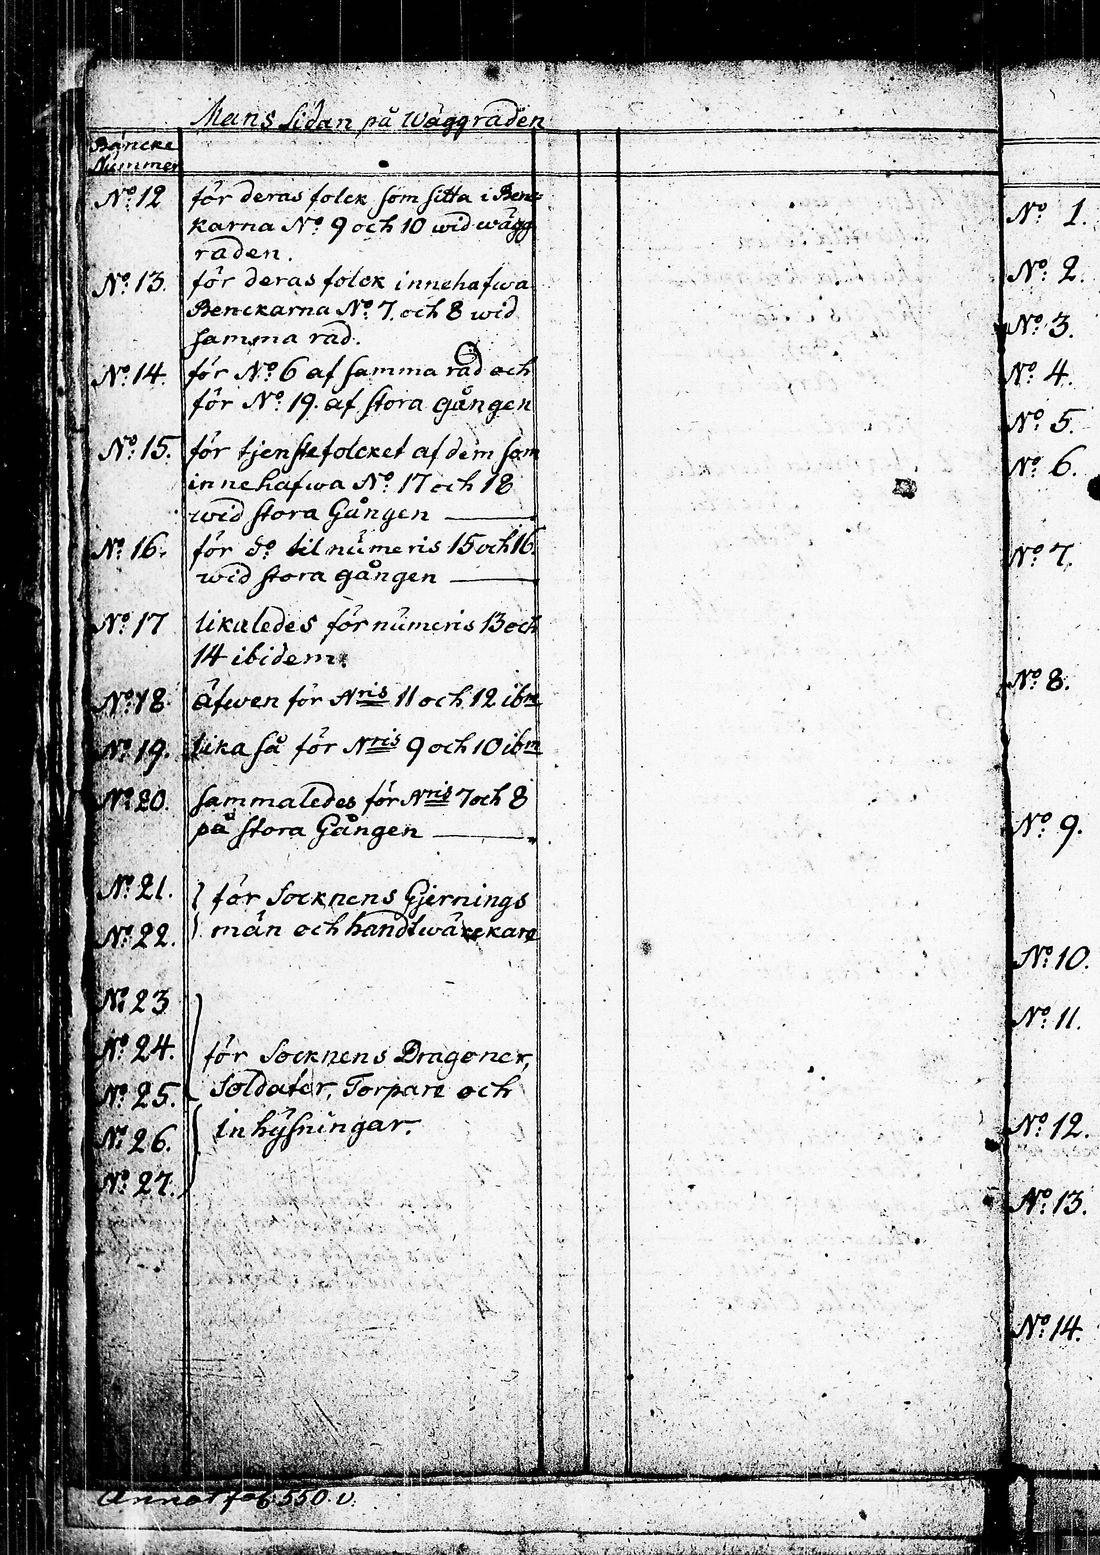 Mans Sidan på Wäggraden
Bäncke
Nummer
No 12 för deras folck som sitta i Benc-
karna No 9 och 10 wid wägg
raden.
No 13. för deras folck innehafwa
Benckarna No 7. och 8 wid
samma rad.
No 14. för No 6 af samma rad och
för No 19. af stora gången
No 15. för tjenstefolcket af dem som
innehafwa No 17 och 18
wid stora Gången
No 16. för do til numeris 15 och 16.
wid stora gången
No 17 likaledes för numeris 13 och
14 ibidem.
No 18 äfwen för Nris 11 och 12 ibm
No 19. lika så för Nris 9 och 10 ibm
No 20. sammaledes för Nris 7 och 8
på stora Gången
No 21. för Socknens Gjernings
No 22. män och handtwärckare
No 23
No 24. för Socknens Dragoner,
No 25. Soldater, Torpare och
No 26. inhysningar.
No 27.
550. v.
No 1.
No 2.
No 3.
No 4.
No 5.
No 6.
No 7.
No 8.
No 9.
No 10.
No 11.
No 12.
No 13.
No 14.